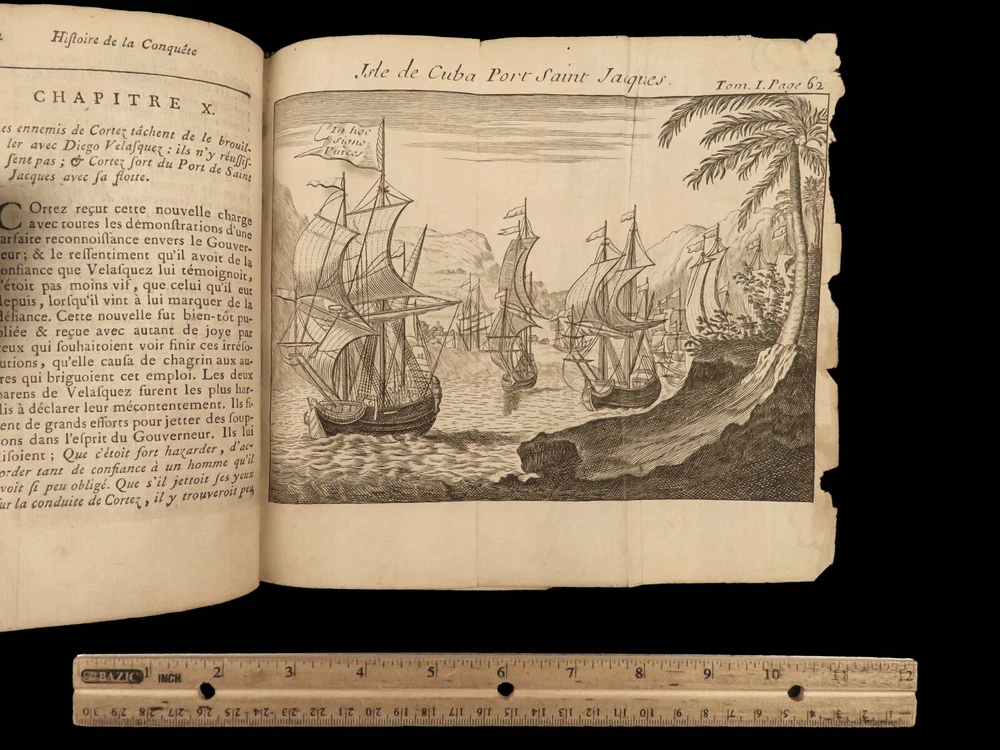 Histoire de la Conquête
CHAPITRE X.
es ennemis de Cortez tâchent de le brouil-
ler avec Diego Velasquez : ils n'y réussis-
sent pas ; & Cortez sort du Port de Saint
Jacques avec sa flotte.
COrtez reçut cette nouvelle charge
avec toutes les démonstrations d'une
arfaite reconnoissance envers le Gouver-
eur ; & le ressentiment qu'il avoit de la
onfiance que Velasquez lui témoignoit,
'étoit pas moins vif, que celui qu'il eut
depuis, lorsqu'il vint à lui marquer de la
défiance. Cette nouvelle fut bien-tôt pu-
bliée & reçue avec autant de joye par
ceux qui souhaitoient voir finir ces irréso-
lutions, qu'elle causa de chagrin aux au-
res qui briguoient cet emploi. Les deux
parens de Velasquez furent les plus har-
dis à déclarer leur mécontentement. Ils fi-
ent de grands efforts pour jetter des soup-
ons dans l'esprit du Gouverneur. Ils lui
disoient ; Que c'étoit fort hazarder, d'ac-
order tant de confiance à un homme qu'il
voit si peu obligé. Que s'il jettoit ses yeux
ur la conduite de Cortez, il y trouveroit peu
Isle de Cuba Port Saint Jaques.
Tom. I. Page 62
In hoc
signo
Vinces
BAZIC 1 INCH 2 3 4 5 6 7 8 9 10 12
30 29 28 27 26 25 24 23 22 21 20 19 18 17 16 15 14 13 12 11 10 9 8 7 6 5 4 3 2 1